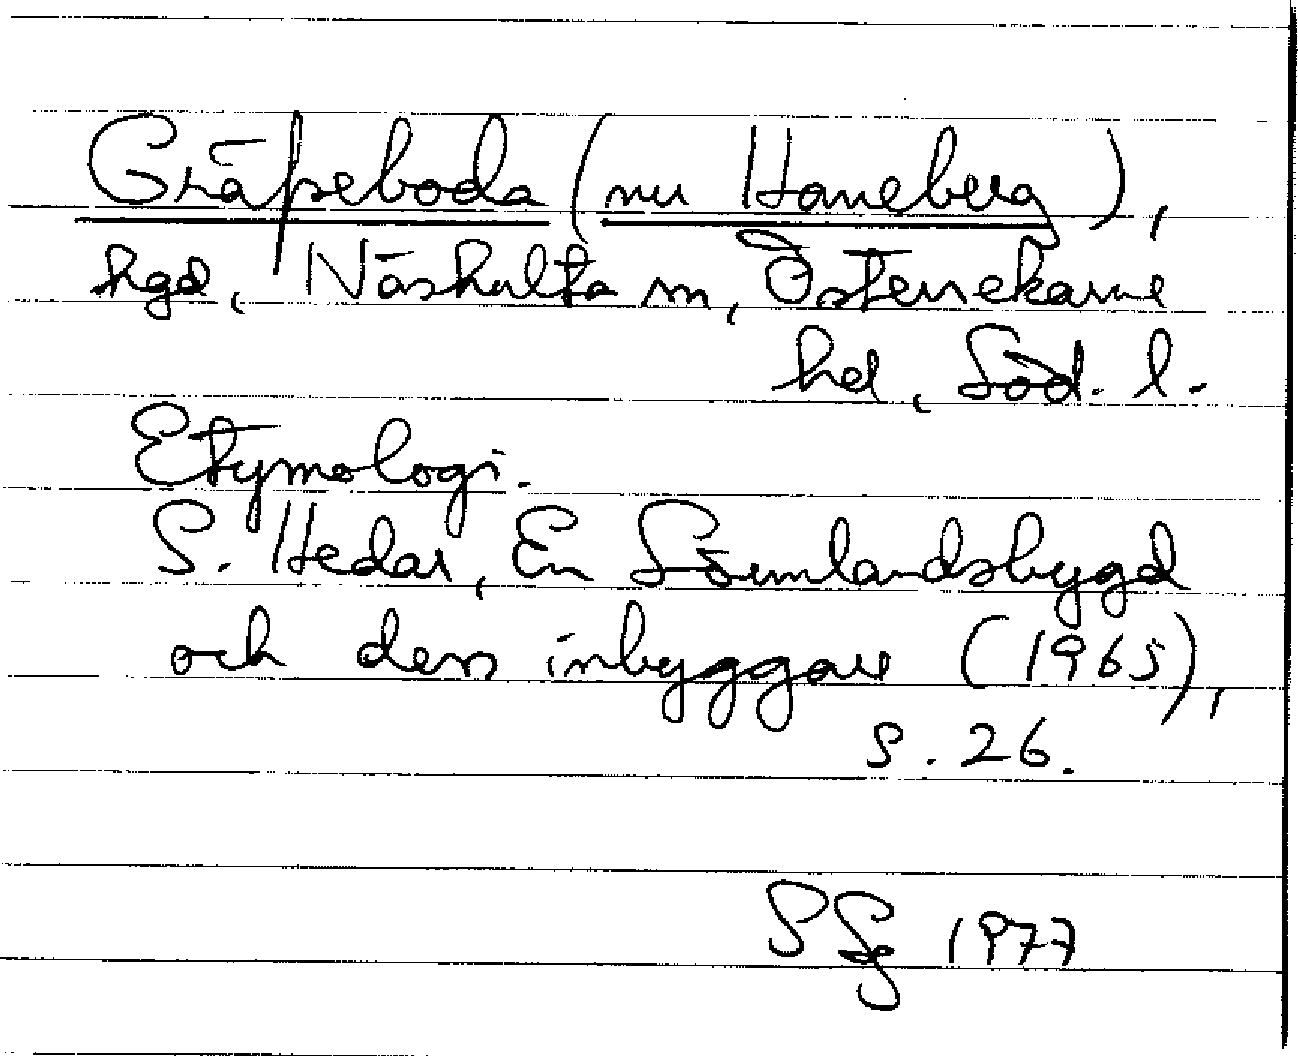 Gräpeboda (nu Haneberg),
hgd, Näshulta sn, Österrekarne
hd, Söd. l.
Etymologi.
S. Hedar, En Sörmlandsbygd
och dess inbyggare (1965),
s. 26.
1977